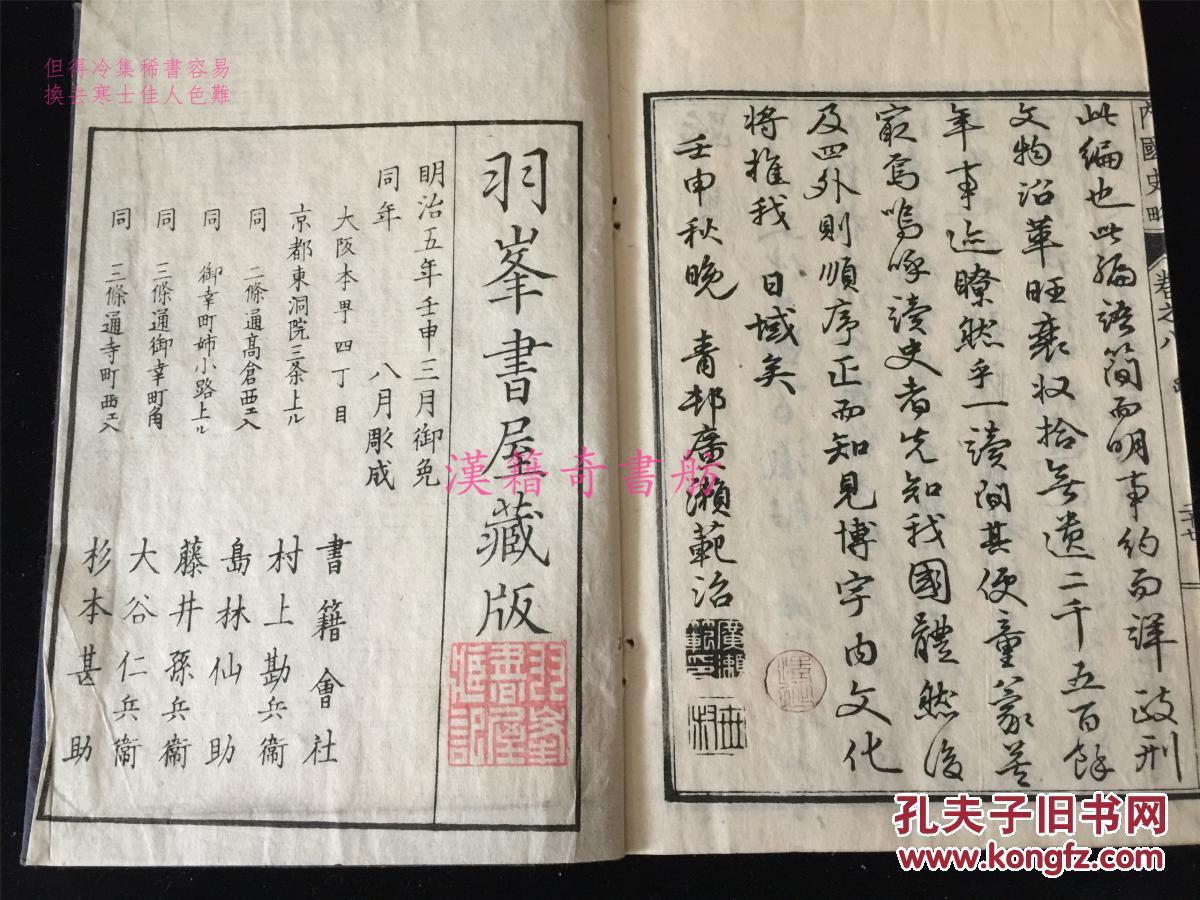 但得冷集稀書容易
換去寒士佳人色難
內國史略 卷之八
此編也此編語簡而明事約而詳政刑
文物沿革旺衰收拾無遺二千五百餘
年事迹瞭然乎一讀間其便童蒙善
最焉嗚呼讀史者先知我國體然後
及四外則順序正而知見博宇內文化
將推我 日域矣
壬申秋晚 青邨廣瀨範治
羽峯書屋藏版
明治五年壬申三月御免
同年 八月彫成
大阪本甼四丁目 書籍會社
京都東洞院三条上ル 村上勘兵衞
同 二條通高倉西エ入 島林仙助
同 御幸町姉小路上ル 藤井孫兵衞
同 三條通御幸町角 大谷仁兵衞
同 三條通寺町西エ入 杉本甚助
羽峯書屋藏記
漢籍奇書舫
孔夫子旧书网
www.kongfz.com